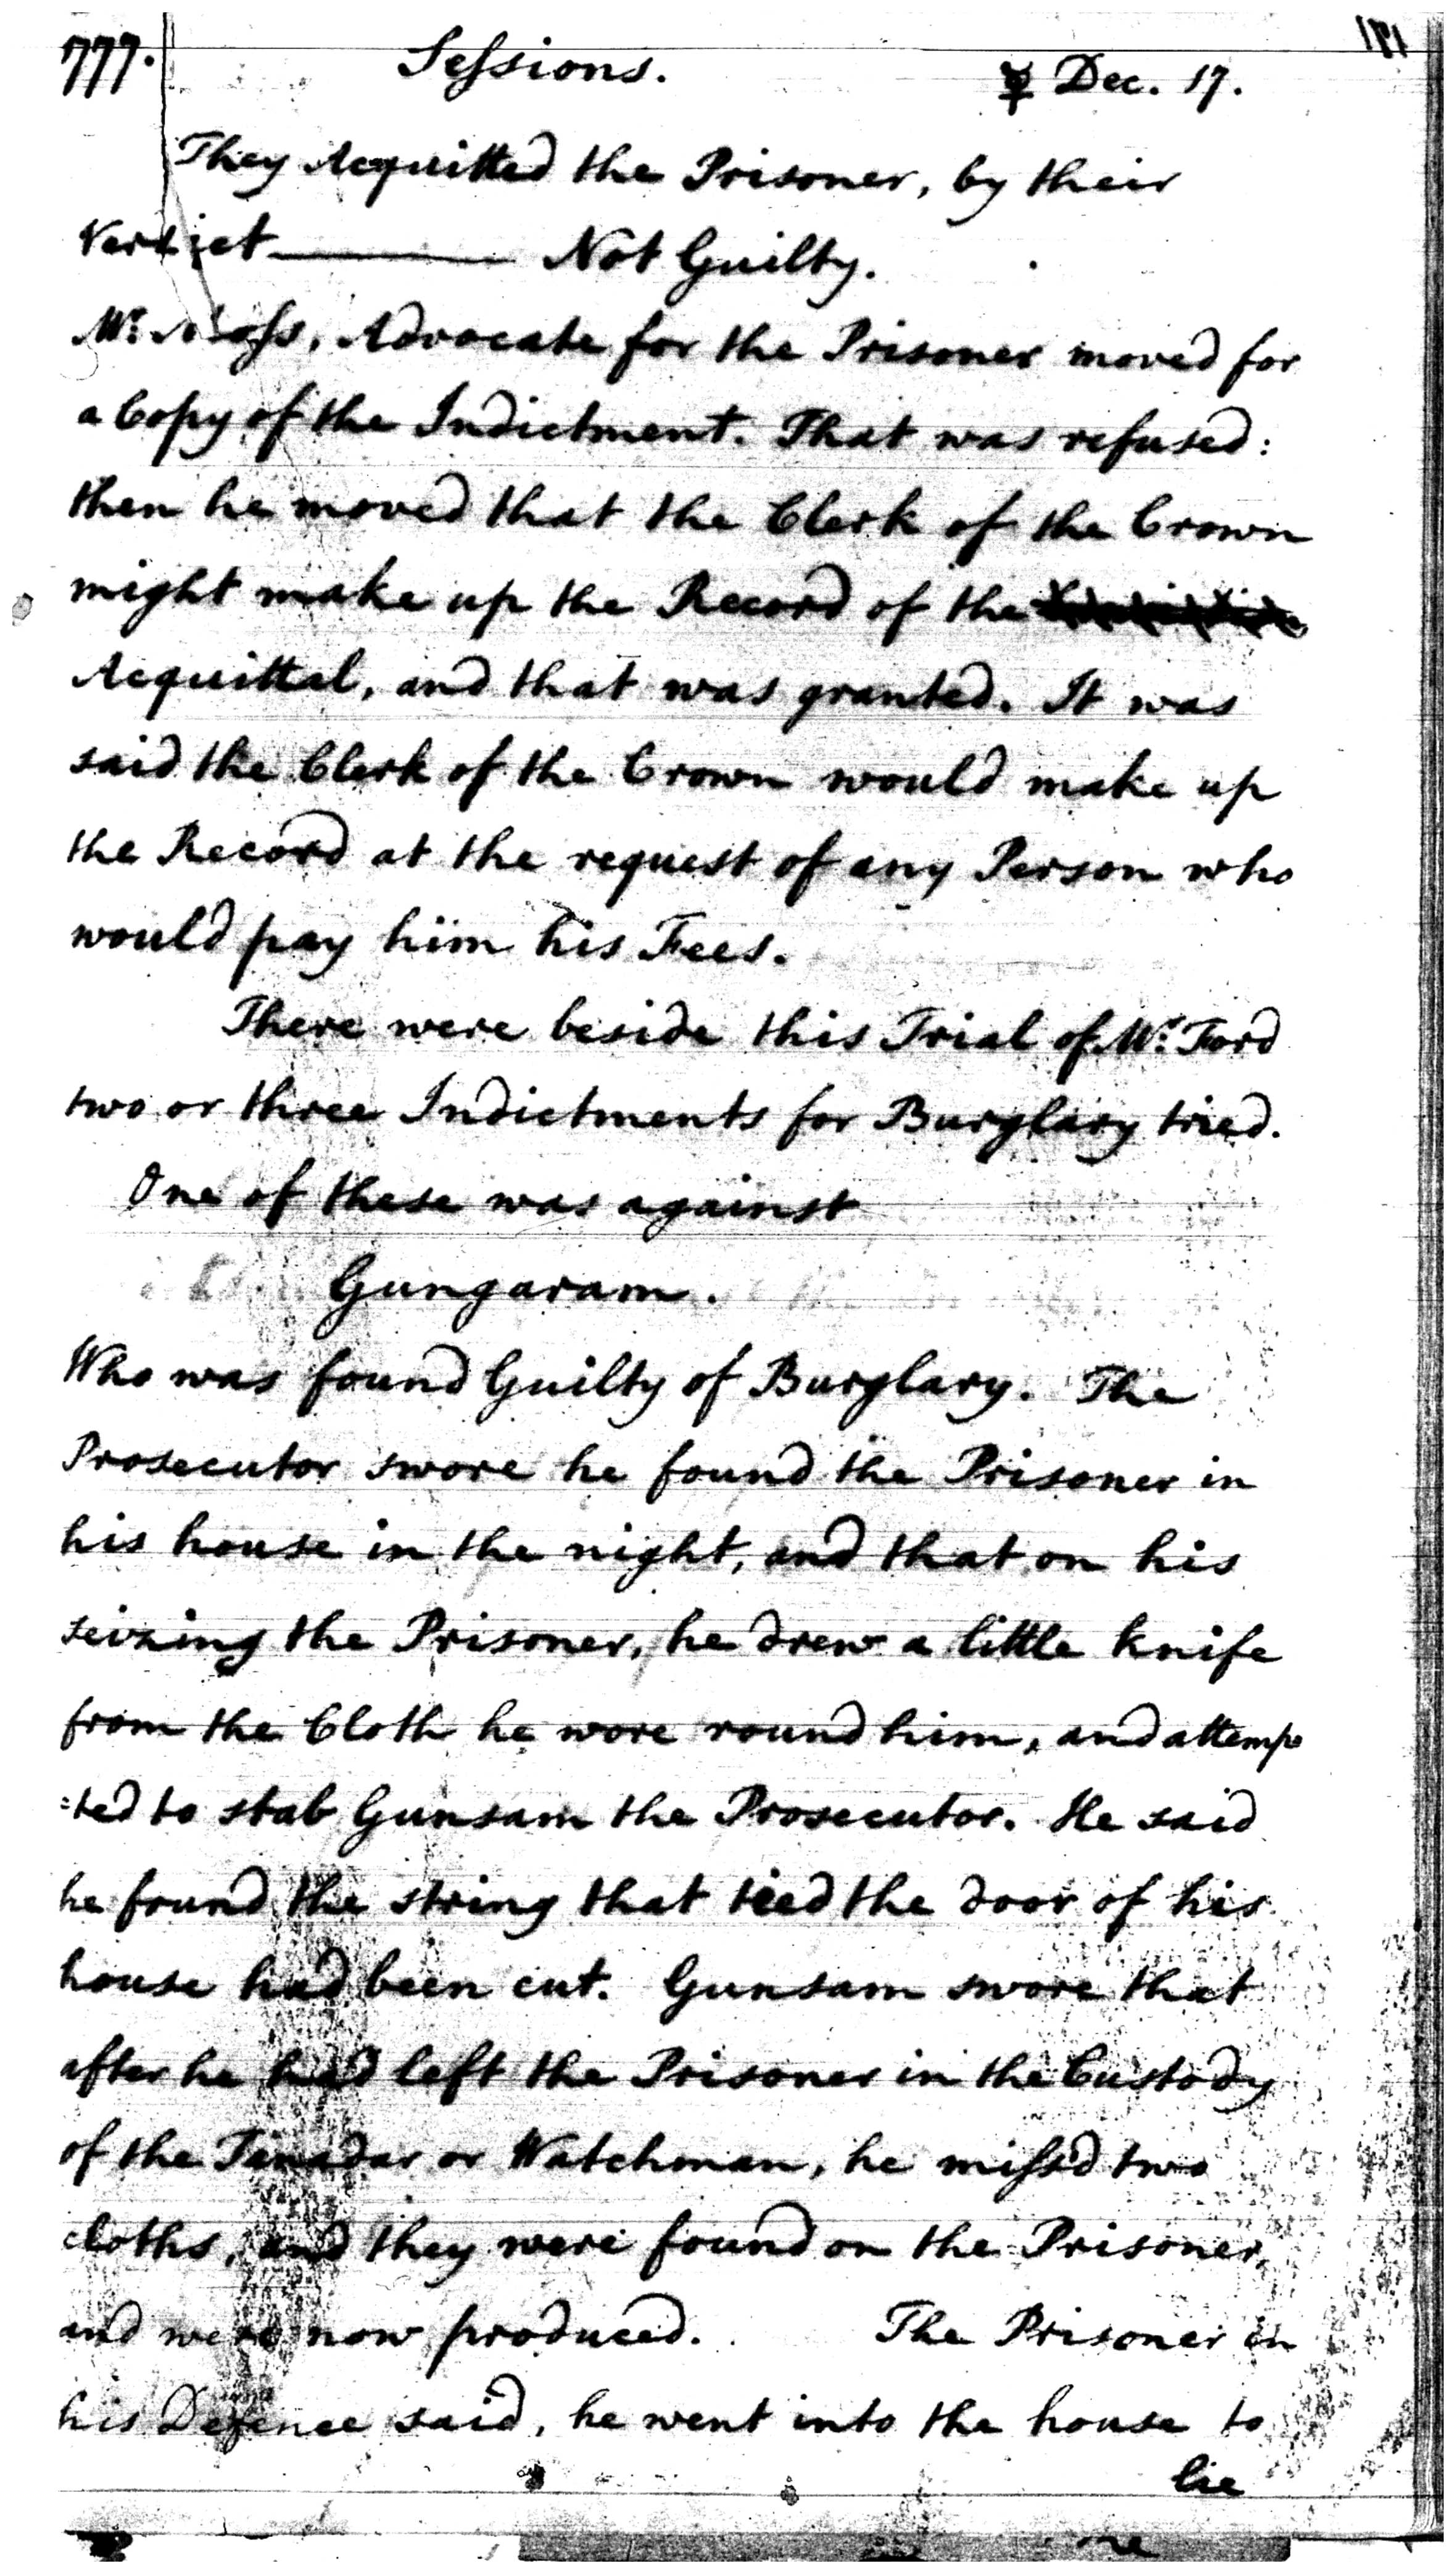 777. Sessions. ♀ Dec. 17.
They Acquitted the Prisoner, by their
Verdict ——— Not Guilty.
Mr. Moss, Advocate for the Prisoner moved for
a Copy of the Indictment. That was refused:
then he moved that the Clerk of the Crown
might make up the Record of the
Acquittal, and that was granted. It was
said the Clerk of the Crown would make up
the Record at the request of any Person who
would pay him his Fees.
There were beside this Trial of Mr. Ford
two or three Indictments for Burglary tried.
One of these was against
Gungaram.
Who was found Guilty of Burglary. The
Prosecutor swore he found the Prisoner in
his house in the night, and that on his
seizing the Prisoner, he drew a little knife
from the Cloth he wore round him, and attemp
:ted to stab Gunsam the Prosecutor. He said
he found the string that tied the door of his
house had been cut. Gunsam swore that
after he had left the Prisoner in the Custody
of the Tanadar or Watchman, he miss'd two
cloths, and they were found on the Prisoner,
and were now produced. The Prisoner in
his Defence said, he went into the house to
lie